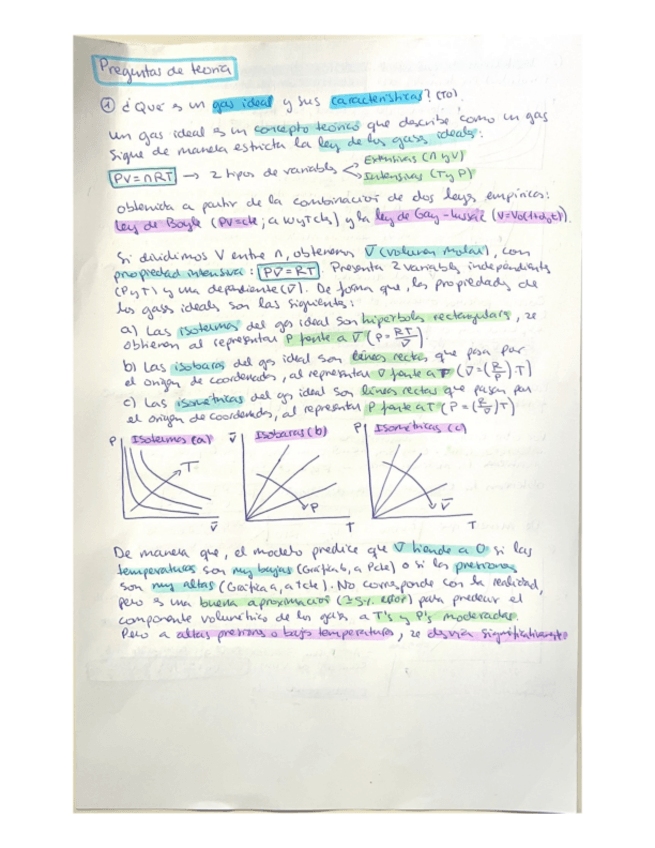 Preguntas de teoría
① ¿Qué es un gas ideal y sus características? (TO)
Un gas ideal es un concepto teórico que describe cómo un gas
sigue de manera estricta la ley de los gases ideales:
PV=nRT → 2 tipos de variables < Extensivas (n y V)
Intensivas (T y P)
obtenida a partir de la combinación de dos leyes empíricas:
Ley de Boyle (PV=cte; a n y T ctes) y la ley de Gay-Lussac
Si dividimos V entre n, obtenemos V̅ (volumen molar), con
propiedad intensiva: PV̅=RT. Presenta 2 variables independients
(P y T) y una dependiente (V̅). De forma que, las propiedades de
los gases ideales son las siguientes:
a) Las isotermas del gas ideal son hipérbolas rectangulares, se
obtienen al representar P frente a V̅ (P=RT/V̅)
b) Las isobaras del gas ideal son líneas rectas que pasan por
el origen de coordenadas, al representar V̅ frente a T (V̅=(R/P)T)
c) Las isométricas del gas ideal son líneas rectas que pasan por
el origen de coordenadas, al representar P frente a T (P=(R/V̅)T)
P Isotermas (a) V̅ Isobaras (b) P Isométricas (c)
T P V̅
V̅ T T
De manera que, el modelo predice que V̅ tiende a 0 si las
temperaturas son muy bajas (Gráfica b, a Pcte) o si las presiones
son muy altas (Gráfica a, a Tcte). No corresponde con la realidad,
pero es una buena aproximación (±5% error) para predecir el
componente volumétrico de los gases a T's y P's moderadas.
Pero a altas presiones o bajas temperaturas, se desvía significativamente